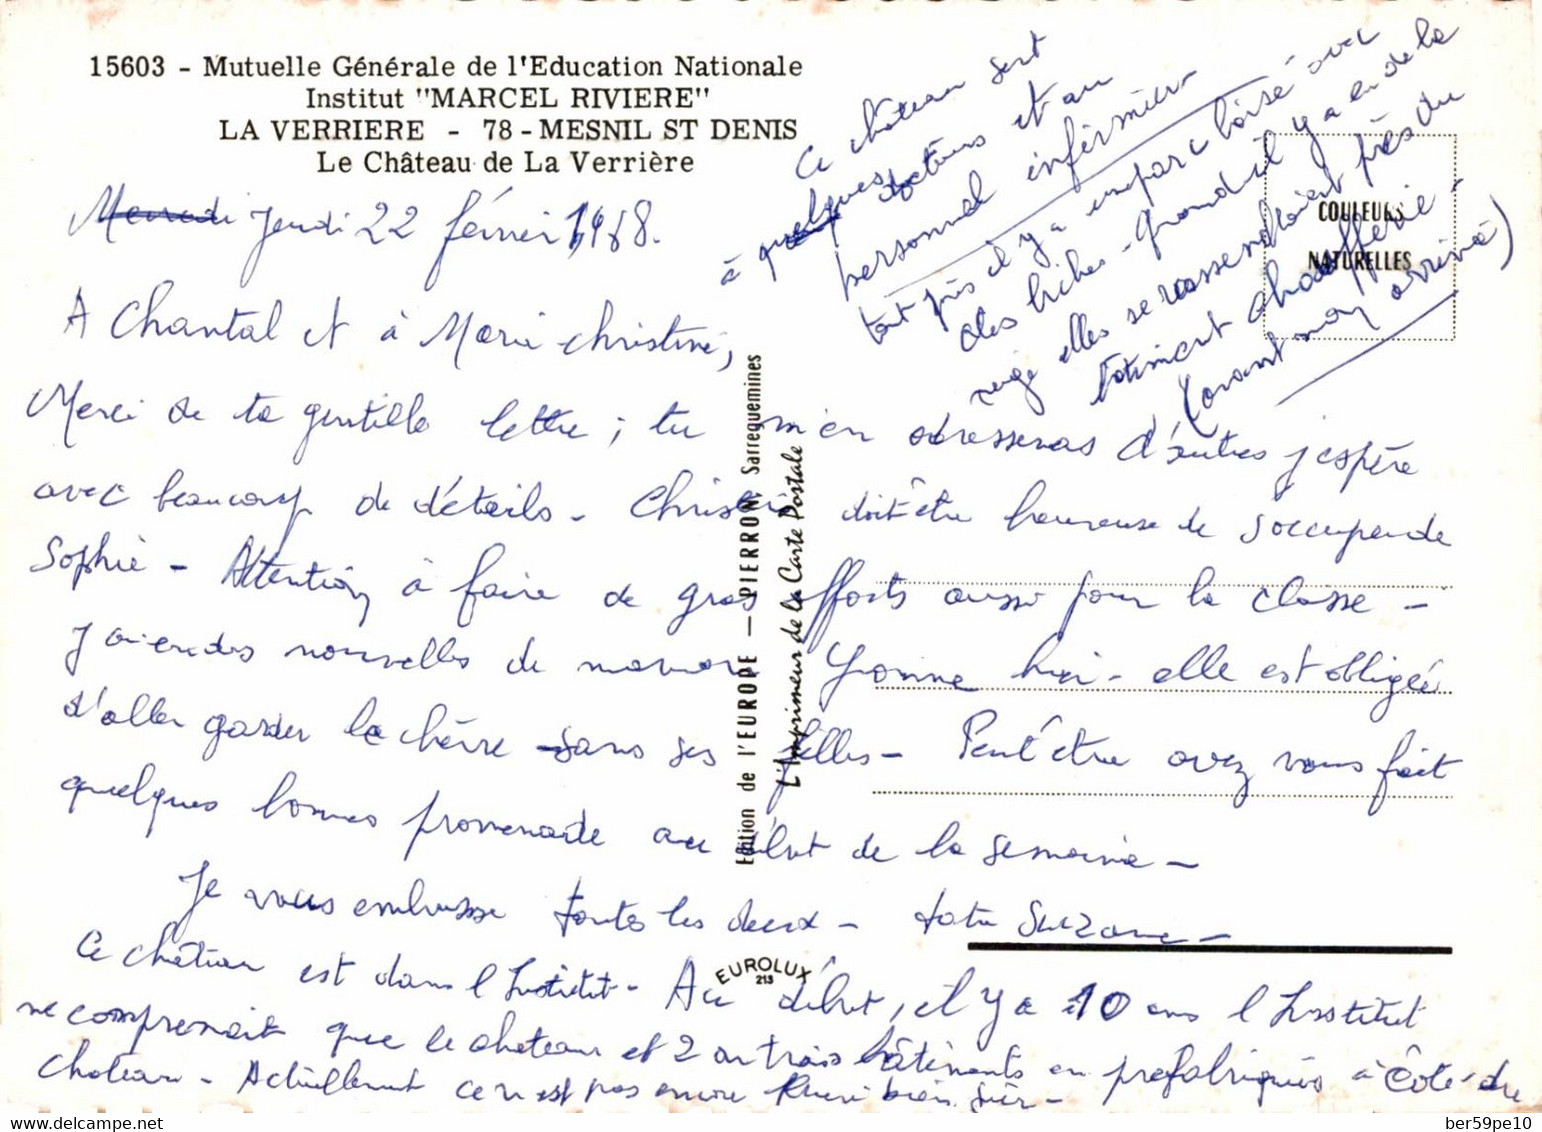 15603 - Mutuelle Générale de l'Education Nationale
Institut "MARCEL RIVIERE"
LA VERRIERE - 78 - MESNIL ST DENIS
Le Château de La Verrière
Mercredi Jeudi 22 février 1968.
A Chantal et à Marie-Christine,
Merci de ta gentille lettre ; tu m'en adresseras d'autres j'espère
avec beaucoup de détails - doit être heureuse de s'occuper de
Sophie - Attention à faire de gros efforts aussi pour la classe -
J'ai eu des nouvelles de maman Yvonne hier - elle est obligée
d'aller garder la chèvre sans ses filles - Peut être avez vous fait
quelques bonnes promenade au début de la semaine -
Je vous embrasse toutes les deux - tata Suzanne -
Ce château est dans l'Institut - Au début, il y a 10 ans l'Institut
ne comprenait que le château et 2 ou trois bâtiments en préfabriqués à côté du
château - Actuellement ce n'est pas encore fini bien sûr -
Ce château sert
à quelques docteurs et au
personnel infirmier
tout près il y a un parc boisé avec
des biches - quand il y a eu de la
neige elles se rassemblaient près du
bâtiment chaufferie -
(avant mon arrivée)
COULEURS
NATURELLES
Edition de l'EUROPE — PIERRON, Sarreguemines
L'Imprimeur de la Carte Postale
EUROLUX
213
ber59pe10